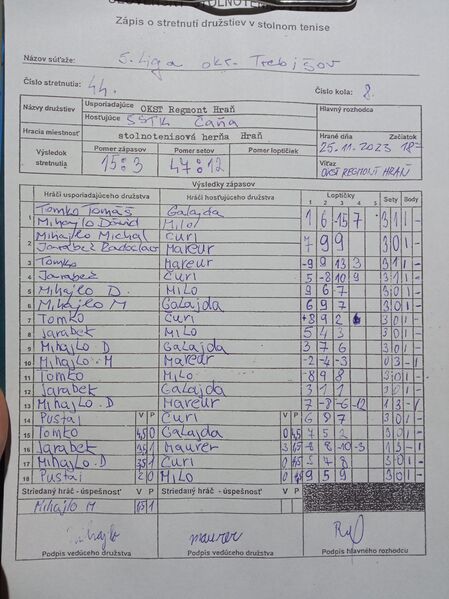 Zápis o stretnutí družstiev v stolnom tenise
Názov súťaže: 5. liga okr. Trebišov
Číslo stretnutia: 44. Číslo kola: 8.
Názvy družstiev Usporiadajúce OKST Regmont Hraň Hlavný rozhodca
Hosťujúce SSTK Čaňa
Hracia miestnosť stolnotenisová herňa Hraň Hrané dňa Začiatok
25.11.2023 18
Výsledok stretnutia Pomer zápasov Pomer setov Pomer loptičiek Víťaz
15:3 47:12 OKST REGMONT HRAŇ
Výsledky zápasov
Hráči usporiadajúceho družstva Hráči hosťujúceho družstva Loptičky Sety Body
1 2 3 4 5
1 Tomko Tomáš Galajda 1 6 -15 7 3 1 1 -
Mihajlo Dávid Milo
2 Mihajlo Michal Čuri 7 9 9 3 0 1 -
Jarabek Radoslav Mareur
3 Tomko Mareur -9 9 13 3 3 1 1 -
4 Jarabek Čuri 5 -8 10 9 3 1 1 -
5 Mihajlo D. Milo 9 6 7 3 0 1 -
6 Mihajlo M Galajda 6 9 7 3 0 1 -
7 Tomko Čuri 8 9 2 6
8 Jarabek Milo 5 4 3 3 0 1 -
9 Mihajlo D Galajda 3 7 6 3 0 1 -
10 Mihajlo M Mareur -2 -4 -3 0 3 - 1
11 Tomko Milo 8 9 8 3 0 1 -
12 Jarabek Galajda 3 1 1 3 0 1 -
13 Mihajlo D Mareur 7 -8 -6 -12 1 3 - 1
14 Pustai Čuri 6 8 7 3 0 1 -
15 Tomko Galajda 7 5 2 3 0 1 -
16 Jarabek Maurer -8 -10 -3 1 3 - 1
17 Mihajlo D Čuri 7 8 3 0 1 -
18 Pustai 2 0 Milo 9 5 9 3 0 1 -
Striedaný hráč - úspešnosť V P Striedaný hráč - úspešnosť V P
Mihajlo M
Mihajlo maurer
Podpis vedúceho družstva Podpis vedúceho družstva Podpis hlavného rozhodcu